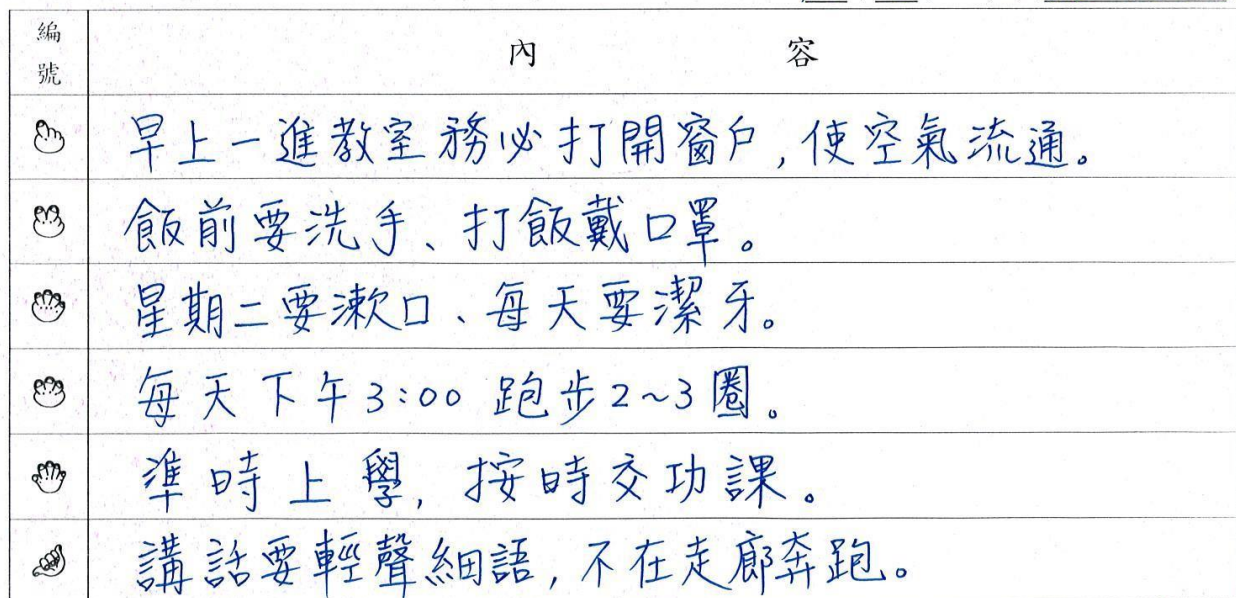 編號 內容
早上一進教室務必打開窗戶,使空氣流通。
飯前要洗手、打飯戴口罩。
星期二要漱口、每天要潔牙。
每天下午3:00 跑步2~3圈。
準時上學,按時交功課。
講話要輕聲細語,不在走廊奔跑。